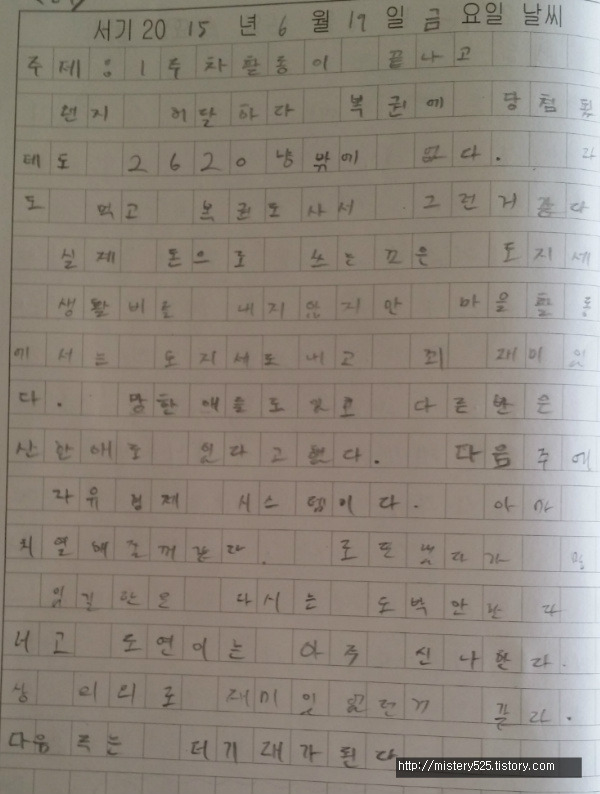 서기 20 15 년 6 월 19 일 금 요일 날씨
주제 : 1주차활동이 끝나고
왠지 허달하다 복권에 당첨됬
데도 2620냥밖에 없다. 라
도 먹고 복권도 사서 그런거 같다
실제 돈으로 쓰는 도지세
생활비는 내지않지만 마을활동
에서는 도지세도 내고 꾀 재미있
다. 망한애들도 있고 다른반은
산한애도 있다고 했다. 다음주에
자유경제 시스템이다. 아마
치열해질꺼같다. 로또 냈다가
있길한은 다시는 도박안한다
너고 도연이는 아주 신나한다.
상 외의로 재미있었던거 같다.
다음주는 더기대가된다
http://mistery525.tistory.com